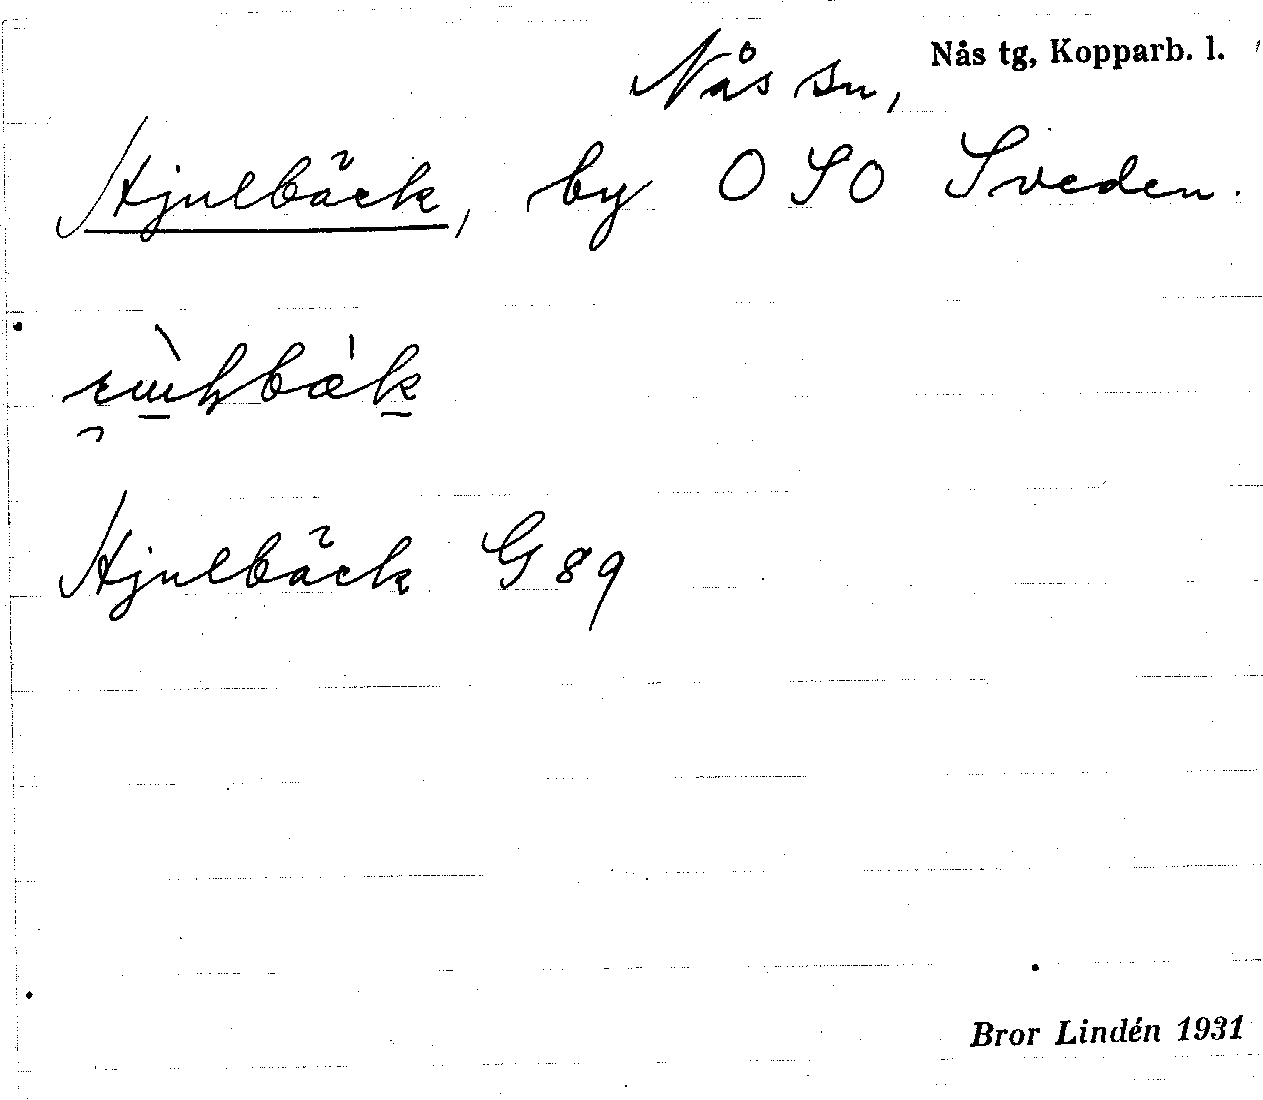 Nås tg, Kopparb. l.
Nås sn,
Hjulbäck, by OSO Sveden.
Hjulbäck G 89
Bror Lindén 1931